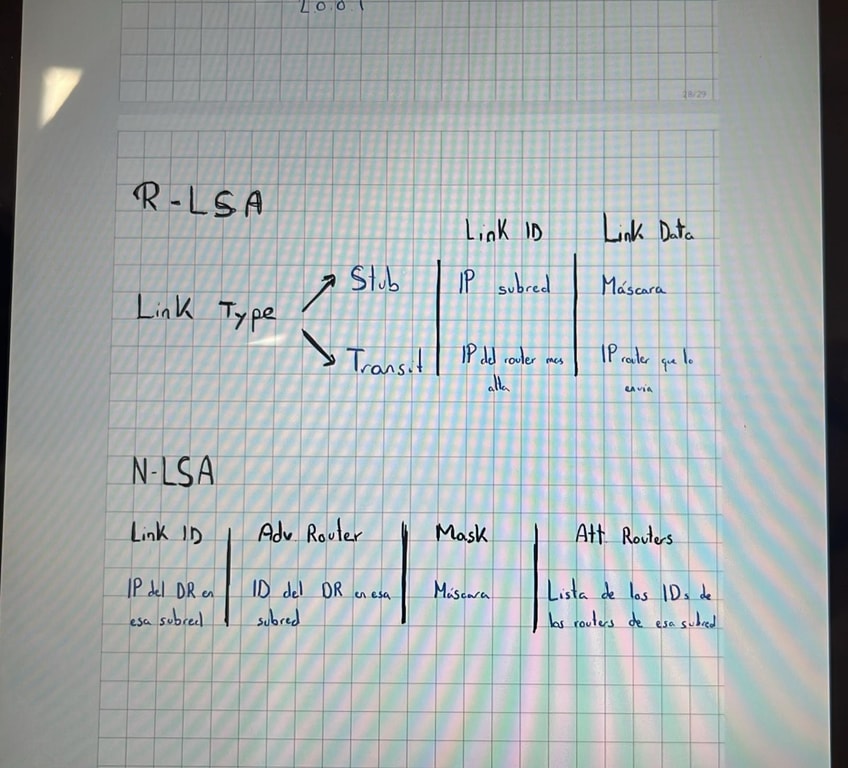 20.0.1
18/29
R-LSA
Link ID Link Data
Link Type
Stub IP subred Máscara
Transit IP del router mas alta IP router que lo envia
N-LSA
Link ID Adv. Router Mask Att Routers
IP del DR en ID del DR en esa Máscara Lista de los IDs de
esa subred subred los routers de esa subred